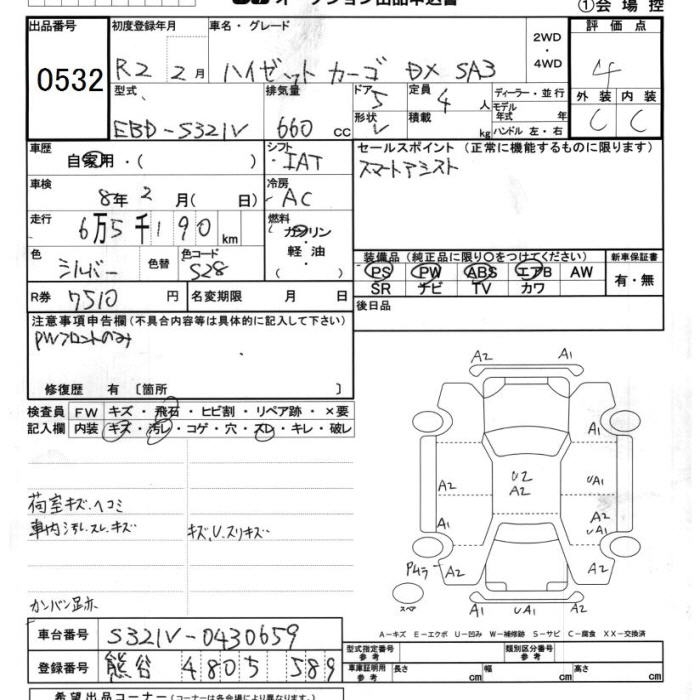 オークション出品申込書
①会場控
出品番号 0532
初度登録年月 R2 2月
車名・グレード ハイゼットカーゴ DX SA3
2WD・4WD
評価点 4
型式 EBD-S321V
排気量 660 cc
ドア 5
形状 V
定員 4 人
積載 kg
ディーラー・並行
モデル年式 年
ハンドル 左・右
外装 C
内装 C
車歴 自家用・( )
シフト IAT
セールスポイント (正常に機能するものに限ります)
スマートアシスト
車検 8年2月( 日)
冷房 AC
走行 6万5千190km
燃料 ガソリン・軽油・( )
色 シルバー
色替
色コード S28
装備品 (純正品に限り○をつけてください)
PS PW ABS エアB AW
SR ナビ TV カワ
新車保証書 有・無
R券 7510 円
名変期限 月 日
後日品
注意事項申告欄 (不具合内容等は具体的に記入して下さい)
PWフロントのみ
修復歴 有 〔箇所 〕
検査員記入欄
FW キズ・飛石・ヒビ割・リペア跡・×要
内装 キズ・汚レ・コゲ・穴・スレ・キレ・破レ
荷室キズ、ヘコミ
車内汚レ、スレ、キズ
キズ、U、スリキズ
カンバン足跡
A2 A1
A1
A2 U2 A2 UA1
A1 A2 UA1
P4ラ A2 A2
スペア
A1 UA1 A2
A-キズ E-エクボ U-凹み W-補修跡 S-サビ C-腐食 XX-交換済
車台番号 S321V-0430659
登録番号 熊谷 480 5 589
型式指定番号 参考
類別区分番号 参考
車庫証明用 参考 長さ cm 幅 cm 高さ cm
希望出品コーナー (コーナーは各会場により異なります。)